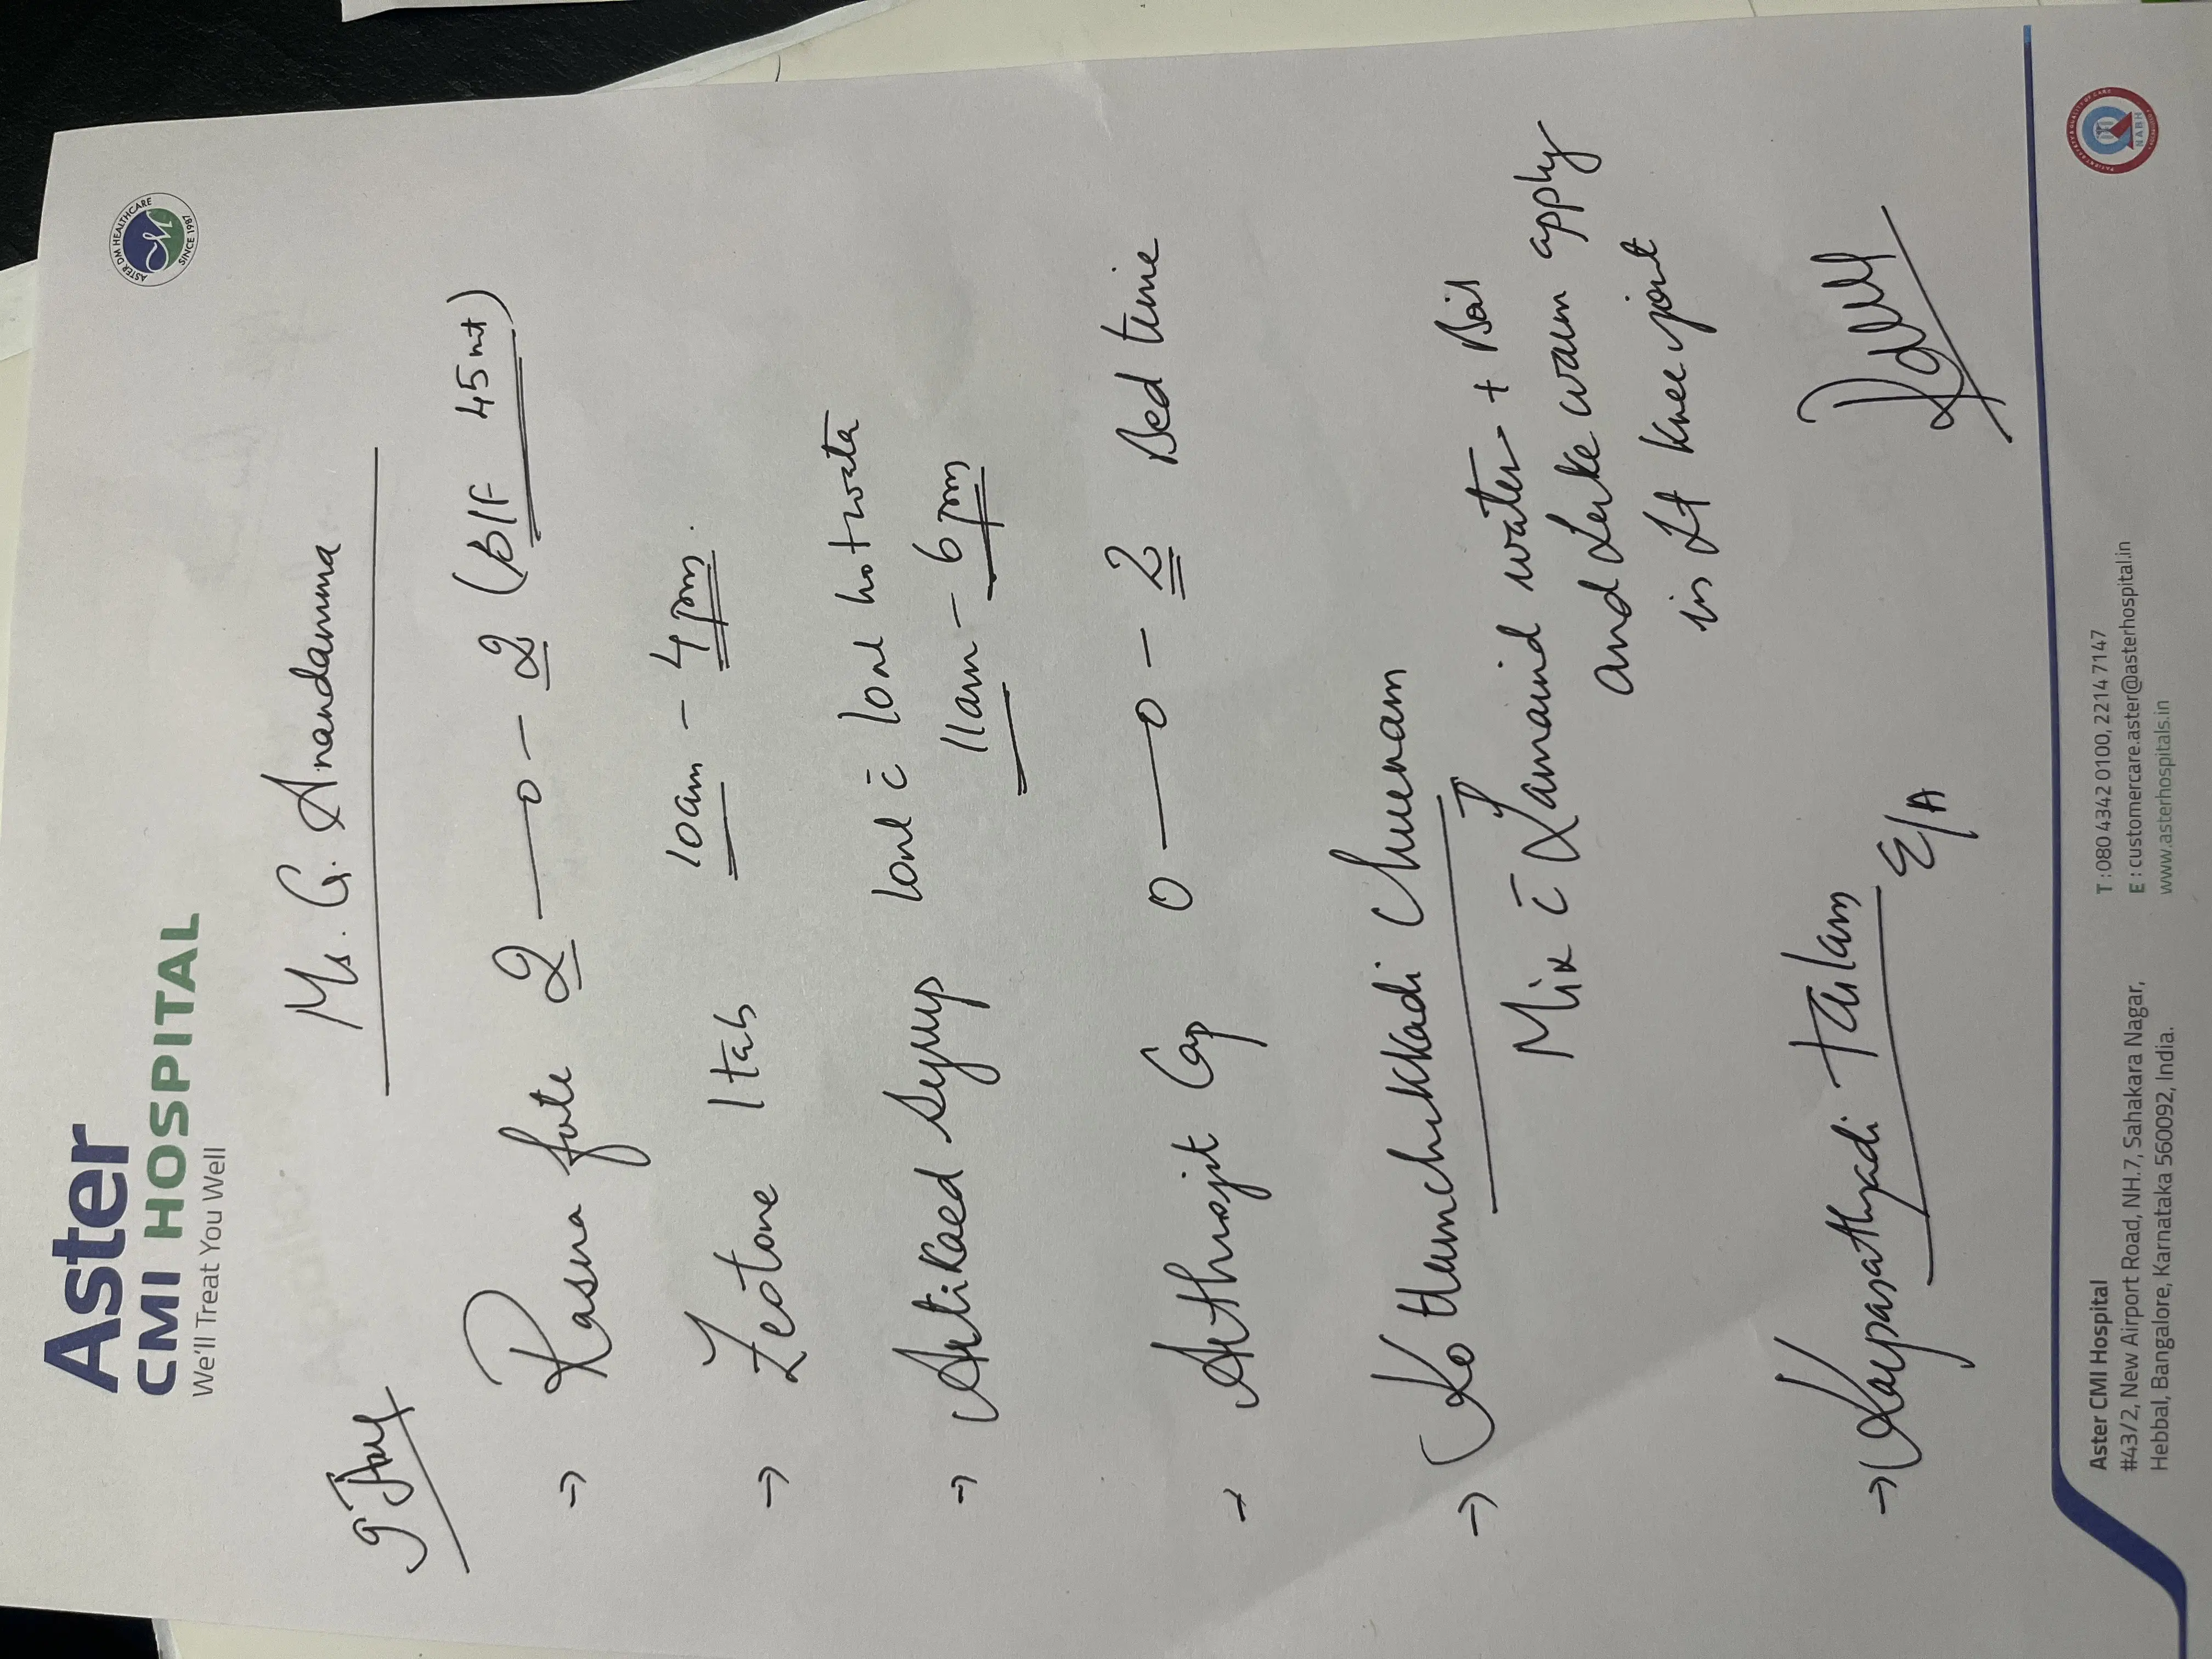 Aster
CMI HOSPITAL
We'll Treat You Well
ASTER DM HEALTHCARE
SINCE 1987
Ms. G. Anandamma
→ Rasna forte 2 — 0 — 2 (B/F 45 mt)
→ Zeotone 1 tab 10am - 4pm.
→ Artikaed Syrup 10ml c̄ 10ml hot wata
11am - 6pm
→ Arthrojit Cap 0 — 0 - 2 Bed time
→ Kottumchukkadi Churnam
Mix c̄ Tamarind water + Boil
and Leuke warm apply
in Lt Knee joint
→ Karpasathyadi tailam E/A
Aster CMI Hospital
#43/2, New Airport Road, NH.7, Sahakara Nagar,
Hebbal, Bangalore, Karnataka 560092, India.
T : 080 4342 0100, 2214 7147
E : customercare.aster@asterhospital.in
www.asterhospitals.in
NABH